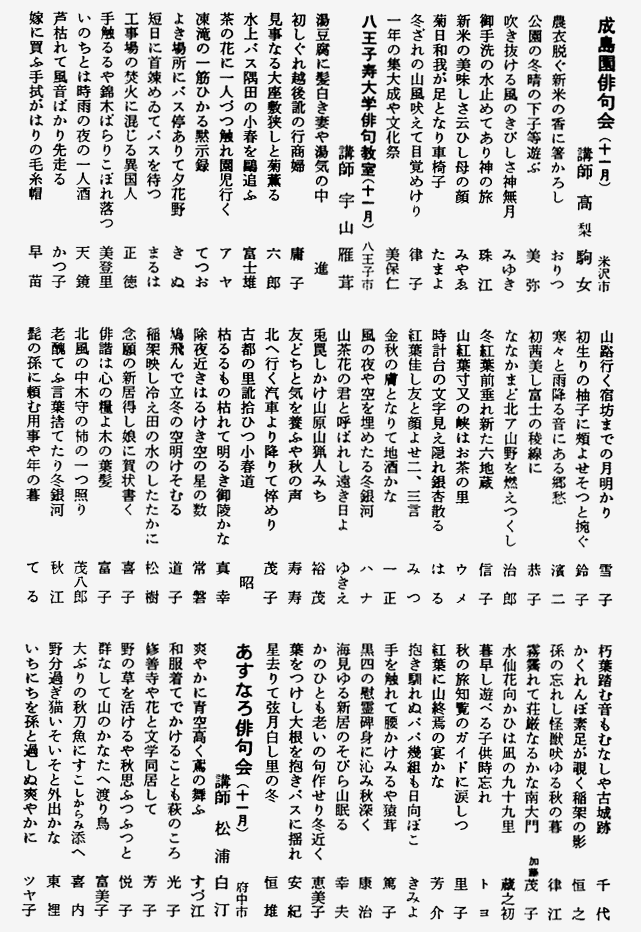 成島園俳句会（十一月）
講師　高梨駒女　米沢市
農衣脱ぐ新米の香に箸かろし　おりつ
公園の冬晴の下子等遊ぶ　美弥
吹き抜ける風のきびしさ神無月　みゆき
御手洗の水止めてあり神の旅　珠江
新米の美味しさ云ひし母の顔　みやゑ
菊日和我が足となり車椅子　たまよ
冬ざれの山風吠えて目覚めけり　律子
一年の集大成や文化祭　美保仁
八王子寿大学俳句教室（十一月）　八王子市
講師　宇山雁茸
湯豆腐に髪白き妻や湯気の中　進
初しぐれ越後訛の行商婦　庸子
見事なる大座敷狭しと菊薫る　六郎
水上バス隅田の小春を鷗追ふ　富士雄
茶の花に一人づつ触れ園児行く　アヤ
凍滝の一筋ひかる黙示録　てつお
よき場所にバス停ありて夕花野　きぬ
短日に首竦めゐてバスを待つ　まるは
工事場の焚火に混じる異国人　正徳
手触るるや錦木ばらりこぼれ落つ　美登里
いのちとは時雨の夜の一人酒　天鏡
芦枯れて風音ばかり先走る　かつ子
嫁に買ふ手拭がはりの毛糸帽　早苗
山路行く宿坊までの月明かり　雪子
初生りの柚子に頰よせそつと捥ぐ　鈴子
寒々と雨降る音にある郷愁　濱二
初茜美し富士の稜線に　恭子
ななかまど北ア山野を燃えつくし　治郎
冬紅葉前垂れ新た六地蔵　信子
山紅葉寸又の峡はお茶の里　ウメ
時計台の文字見え隠れ銀杏散る　はる
紅葉佳し友と顔よせ二、三言　みつ
金秋の膚となりて地酒かな　一正
風の夜や空を埋めたる冬銀河　ハナ
山茶花の君と呼ばれし遠き日よ　ゆきえ
兎罠しかけ山原山猟人みち　裕茂
友どちと気を養ふや秋の声　寿寿
北へ行く汽車より降りて悴めり　茂子
古都の里訛拾ひつ小春道　昭
枯るるもの枯れて明るき御陵かな　真幸
除夜近きはるけき空の星の数　常磐
鳩飛んで立冬の空明けそむる　道子
稲架映し冷え田の水のしたたかに　松樹
念願の新居得し娘に賀状書く　喜子
俳諧は心の糧よ木の葉髪　富子
北風の中木守の柿の一つ照り　茂八郎
老醜てふ言葉捨てたり冬銀河　秋江
髭の孫に頼む用事や年の暮　てる
朽葉踏む音もむなしや古城跡　千代
かくれんぼ素足が覗く稲架の影　恒之
孫の忘れし怪獣吠ゆる秋の暮　律江
霧靄れて荘厳なるかな南大門　加藤茂子
水仙花向かひは凪の九十九里　蔵之初
暮早し遊べる子供時忘れ　トヨ
秋の旅知覧のガイドに涙しつ　里子
紅葉に山終焉の宴かな　芳介
抱き馴れぬパパ幾組も日向ぼこ　きみよ
手を触れて腰かけみるや猿茸　篤子
黒四の慰霊碑身に沁み秋深く　康治
海見ゆる新居のそびら山眠る　幸夫
かのひとも老いの句作せり冬近く　恵美子
葉をつけし大根を抱きバスに揺れ　安紀
星去りて弦月白し里の冬　恒雄
あすなろ俳句会（十一月）
講師　松浦白汀　府中市
爽やかに青空高く鳶の舞ふ　すづ江
和服着てでかけることも萩のころ　光子
修善寺や花と文学同居して　芳子
野の草を活けるや秋思ふつふつと　悦子
群なして山のかなたへ渡り鳥　富美子
大ぶりの秋刀魚にすこしからみ添へ　喜内
野分過ぎ猫いそいそと外出かな　東裡
いちにちを孫と過しぬ爽やかに　ツヤ子